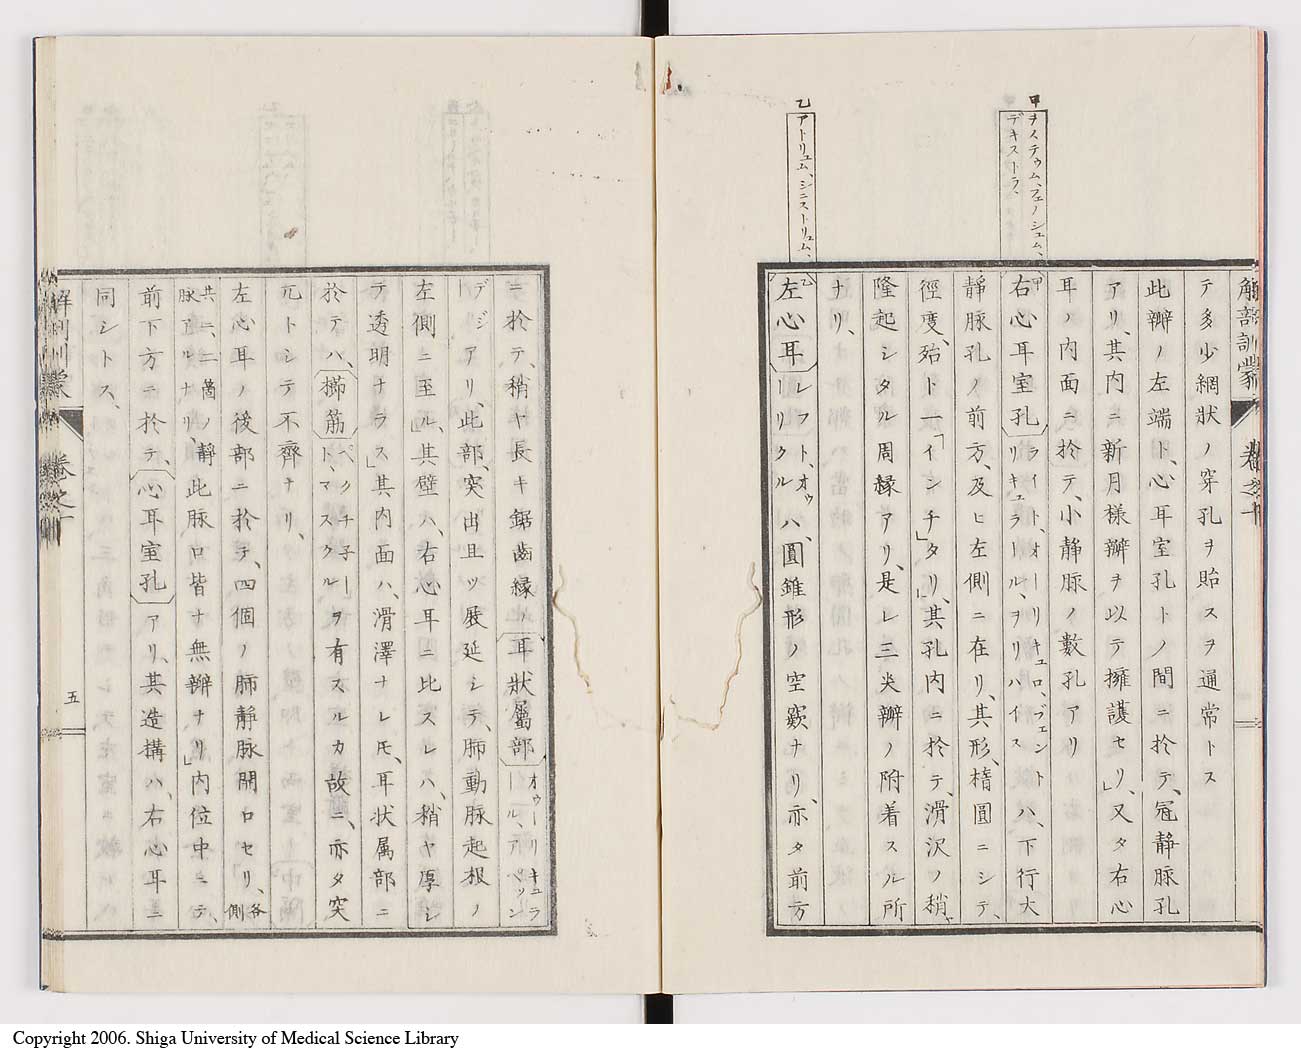 解剖訓蒙 卷之十
甲 ヲスチウム、フェノシュム、
デキストラ、
乙 アトリュム、シニストリュム、
テ多少網狀ノ穿孔ヲ貽スヲ通常トス
此瓣ノ左端ト、心耳室孔トノ間ニ於テ、冠靜脉孔
アリ、其内ニ新月樣瓣ヲ以テ擁護セリ、」又タ右心
耳ノ内面ニ於テ、小靜脉ノ數孔アリ
甲右心耳室孔 ライト、オーリキュロ、ヴェント
リキュラール、ヲリハイス ハ、下行大
靜脉孔ノ前方、及ヒ左側ニ在リ、其形、楕圓ニシテ、
徑度、殆ト一「インチ」タリ、其孔内ニ於テ、滑沢ノ稍ヤ
隆起シタル周縁アリ、是レ三尖瓣ノ附着スル所
ナリ、
乙左心耳 レフト、オウ
ーリクル ハ、圓錐形ノ空竅ナリ、亦タ前方
ニ於テ、稍ヤ長キ鋸齒縁ノ耳狀屬部 オウーリキュラ
ール、アペッン
デジアリ、此部、突出且ツ展延シテ、肺動脉起根ノ
左側ニ至ル、」其壁ハ、右心耳ニ比スレハ、稍ヤ厚シ
テ透明ナラス、」其内面ハ、滑澤ナレ𪜈、耳状属部ニ
於テハ、櫛筋 ペクチ子ー
ト、マスクル ヲ有スルカ故ニ、亦タ突
兀トシテ不齊ナリ、
左心耳ノ後部ニ於テ、四個ノ肺靜脉開口セリ、各側
共ニ、二箇ノ靜
脉アルナリ、此脉口皆ナ無瓣ナリ」内位中ニテ、
前下方ニ於テ、心耳室孔アリ、其造構ハ、右心耳ニ
同シトス、
解剖訓蒙 卷之十
五
Copyright 2006. Shiga University of Medical Science Library